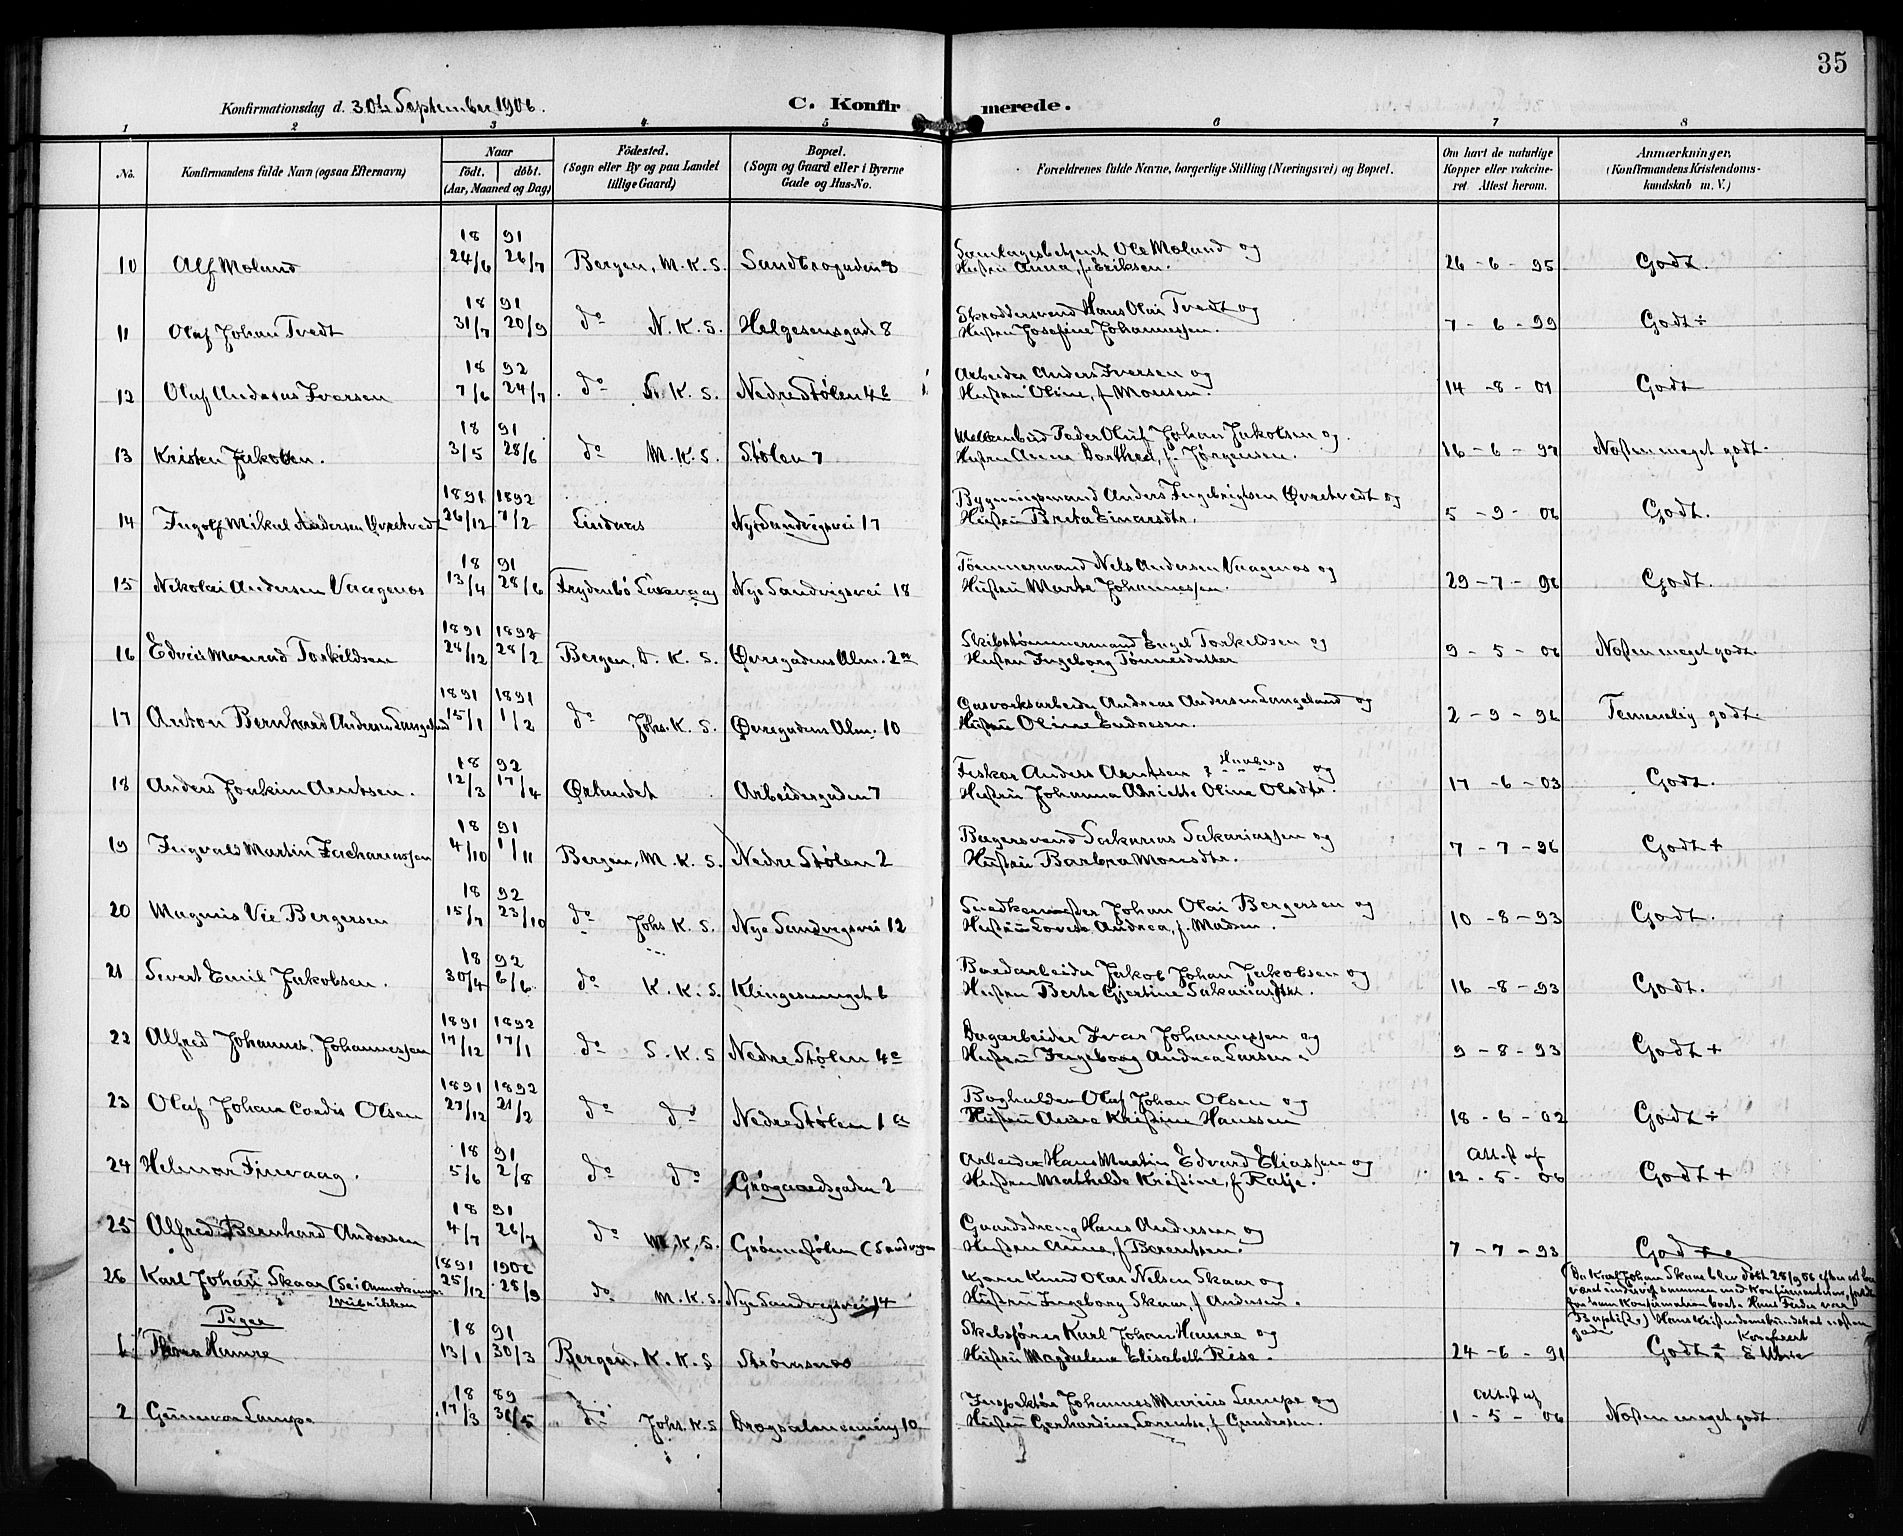 35
Konfirmationsdag d. 30te September 1906.
C. Konfirmerede.
1 2 3 4 5 6 7 8
No. Konfirmandens fulde Navn (ogsaa Efternavn) Naar født. døbt. (Aar, Maaned og Dag) Fødested. (Sogn eller By og paa Landet tillige Gaard) Bopæl. (Sogn og Gaard eller i Byerne Gade og Hus-No. Forældrenes fulde Navne, borgerlige Stilling (Næringsvei) og Bopæl. Om havt de naturlige Kopper eller vakcineret. Attest herom. Anmærkninger, (Konfirmandens Kristendomskundskab m. V.)
10 Alf Moland 18 91 24/6 26/7 Bergen, M. K. S. Sandbrogaden 8 Ole Moland og Hustru Anna, f. Eriksen. 26-6-95 Godt.
11 Olaf Johan Tvedt 18 91 31/7 20/9 do N. K. S. Helgesensgade 8 Skræddersvend Hans Olai Tvedt og Hustru Josefine Johannessen. 7-6-99 Godt÷
12 Olaf Andreas Iversen 18 92 7/6 24/7 do N. K. S. Nedre Stølen 4b Arbeider Anders Iversen og Hustru Oline, f. Monsen. 14-8-01 Godt
13 Kristen Jakobsen. 18 91 3/5 28/6 do M. K. S. Stølen 7 Peder Oluf Johan Jakobsen og Hustru Anna Dorthea, f. Jørgensen. 16-6-97 Næsten meget godt.
14 Ingolf Mikal Andersen Øvretvedt 1891 1892 26/12 7/2 Lindaas Nye Sandvigsvei 17 Bygningsmand Anders Ingebrigtsen Øvretvedt og Hustru Brita Einarsdtr. 5-9-06 Godt.
15 Nikolai Andersen Vaagenæs 18 91 13/4 28/6 Frydenbø Laxevaag Nye Sandvigsvei 18 Tømmermand Nels Andersen Vaagenæs og Hustru Marta Johannessen. 29-7-96 Godt.
16 Edvin Monrad Torkildsen 1891 1892 28/12 28/2 Bergen, D. K. S. Øvregadens Alm. 2a Skibstømmermand Engel Torkeldsen og Hustru Ingeborg Tønnesdatter 9-5-06 Næsten meget godt.
17 Anton Bernhard Andersen Langeland 1891 1891 15/1 1/2 do Johs. K. S. Øvregadens Alm. 10 Gasverksarbeider Andreas Andersen Langeland og Hustru Oline Endresen. 2-9-96 Temmelig godt.
18 Anders Joakim Arntsen. 18 92 12/3 17/4 Ørlandet Arbeidergaden 7 Fisker Anders Arntsen og Hustru Johanna Adriette Oline Olsdtr. 17-6-03 Godt.
19 Ingvald Martin Zachariassen 18 91 4/10 1/11 Bergen, M. K. S. Nedre Stølen 2 Bagersvend Sakarias Sakariassen og Hustru Barbra Monsdtr. 7-7-96 Godt +
20 Magnus Vie Bergersen 18 92 15/7 23/10 do Johs K. S. Nye Sandvigsvei 12 Snedkermester Johan Olai Bergersen og Hustru Lovise Andrea, f. Madsen. 10-8-93 Godt.
21 Severt Emil Jakobsen. 18 92 30/4 6/6 do K. K. S. Klingesmuget 6 Jakob Johan Jakobsen og Hustru Berte Gjertine Sakariasdtr. 16-8-93 Godt.
22 Alfred Johannes Johannessen 1891 1892 17/12 17/1 do S. K. S Nedre Stølen 4c Dagarbeider Ivar Johannessen og Hustru Ingeborg Andrea Larsen. 9-8-93 Godt +
23 Olaf Johan Cordis Olsen 1891 1892 27/12 21/2 do do Nedre Stølen 1a Bogholder Oluf Johan Olsen og Hustru Anna Kristine Hanssen 18-6-02 Godt ÷
24 Helmer Finvaag. 18 91 5/6 2/8 do do Grøgaardsgaden 2 Arbeider Hans Martin Edvard Eliassen og Hustru Mathilde Kristine, f. Attest af 12-5-06 Godt +
25 Alfred Bernhard Andersen 18 91 4/7 26/7 do M. K. S. Grønnestølen (Sandvigen Gaardsdreng Hans Andersen og Hustru Anna, f. Berentsen. 7-7-93 Godt
26 Karl Johan Skaar (Se Anmærknings rubrikken 1891 1906 25/12 25/9 do M. K. S. Nye Sandvigsvei 14 Knud Olai Nilsen Skaar og Hustru Ingeborg Skaar, f. Andersen. Da Karl Johan Skaar blev døbt 25/9 06 efter at have været undervist sammen med Konfirmanterne, Konfirmation bort. Hans Fader var Baptist. Hans Kristendomskundskab næsten godt
Piger
1 Hamre 18 91 13/1 30/3 Bergen, K. K. S Strømsnæs Skibsfører Karl Johan Hamre og Hustru Magdalene Elisabeth Riise. 24-6-91 Godt
2 Gunvor Lampe 18 89 17/3 31/5 do Johs. K. S 10 Inspektør Johannes Marius Lampe og Hustru Gerhardine Lorentse, f. Gundersen. Attest af 1-5-06 Næsten meget godt